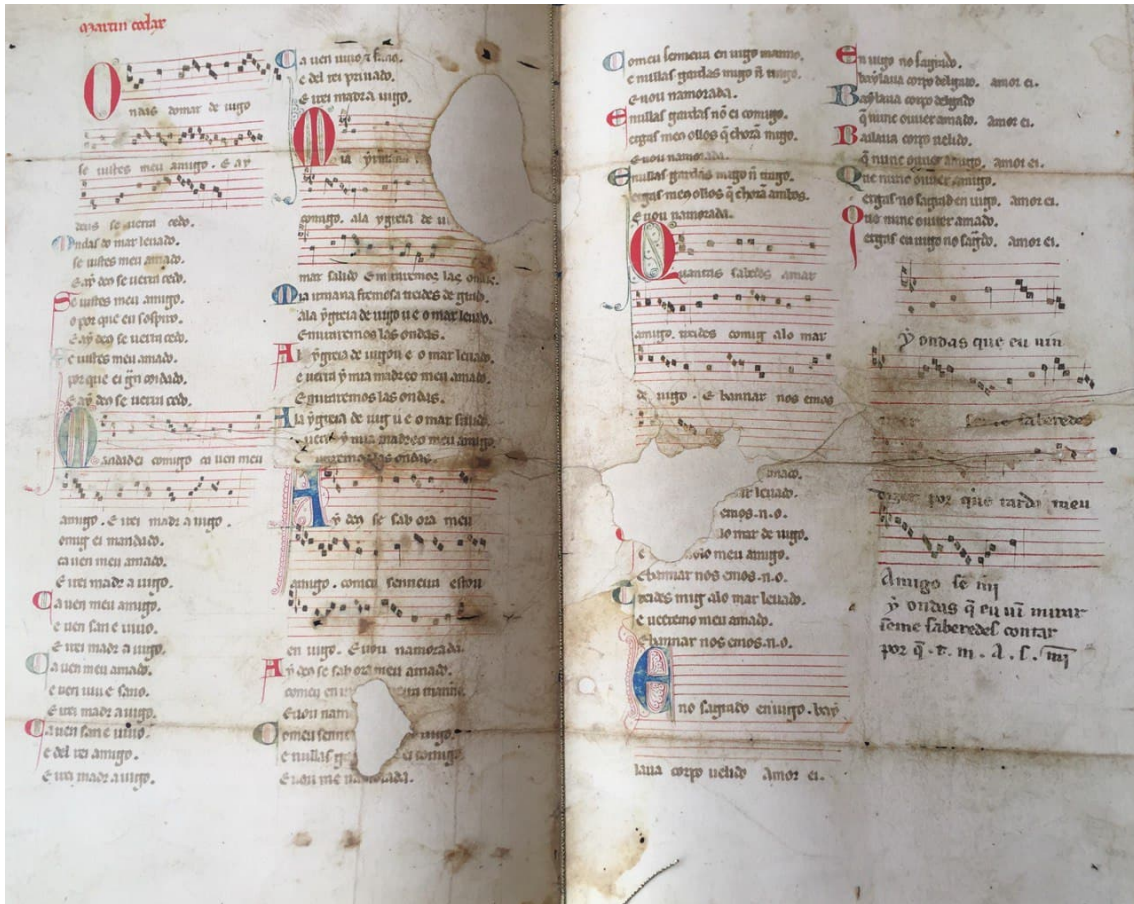 Martin codax
Ondas do mar de uigo
se uistes meu amigo. E ay
deus se uerra cedo.
Ondas do mar leuado.
se uistes meu amado.
E ay deꝯ se uerra cedo.
Se uistes meu amigo.
o por que eu sospiro.
E ay deꝯ se uerra cedo.
Se uistes meu amado.
por que ei gͣn coidado.
E ay deꝯ se uerra cedo.
Mandadei comigo ca uen meu
amigo. E irei madr a uigo.
omig ei mandado.
ca uen meu amado.
E irei madr a uigo.
Ca uen meu amigo.
e uen san e uiuo.
E irei madr a uigo.
Ca uen meu amado.
e uen uiu e sano.
E irei madr a uigo.
Ca uen san e uiuo.
e del rei amigo.
E irei madr a uigo.
Ca uen uiuo e sano.
e del rei priuado.
E irei madr a uigo.
Mia
comigo. ala ygreia de ui
mar salido E miraremos las ondas.
Mia irmana fremosa treides de grado.
ala ygreia de uigo u e o mar leuado.
E miraremos las ondas.
A la ygreia de uigo u e o mar leuado.
e uerra y mia madre o meu amado.
E miraremos las ondas.
A la ygreia de uig u e o mar salido.
e uerra y mia madre o meu amigo.
E miraremos las ondas.
Ay deꝯ se sab ora meu
amigo. comeu senneira estou
en uigo. E uou namorada.
Ay deꝯ se sab ora meu amado.
comeu en ui
E uou nam
Comeu senne uigo.
e nullas ga ei comigo.
E uou me namorada.
Comeu senneira en uigo manno.
e nullas gardas migo ñ trago.
E uou namorada.
E nullas gardas nō ei comigo.
ergas meꝯ ollos q̄ chorā migo.
E uou namorada.
E nullas gardas migo ñ trago.
ergas meꝯ ollos q̄ chorā ambos.
E uou namorada.
Quantas sabedes amar
amigo. treides comig alo mar
de uigo. E bannar nos emos
amado.
ar leuado.
emos.n.o.
lo mar de uigo.
e meu amigo.
E bannar nos emos.n.o.
Treides mig alo mar leuado.
e ueeremo meu amado.
E bannar nos emos.n.o.
Eno sagrado en uigo. bay
laua corpo uelido amor ei.
En uigo no sagrado.
baylaua corpo delgado. amor ei.
Baylaua corpo delgado
q̄ nunc ouuer amado. amor ei.
Bailaua corpo uelido.
q̄ nunc ouuer amigo. amor ei.
Que nunc ouuer amigo.
ergas no sagrad en uigo. amor ei.
Que nunc ouuer amado.
ergas en uigo no sagrado. amor ei.
Ay ondas que eu uin
ueer se me saberedes
dizer por que tarda meu
Amigo se mi
Ay ondas q̄ eu uī mirar
se me saberedes contar
por q̄ . t. m. A. s. mi